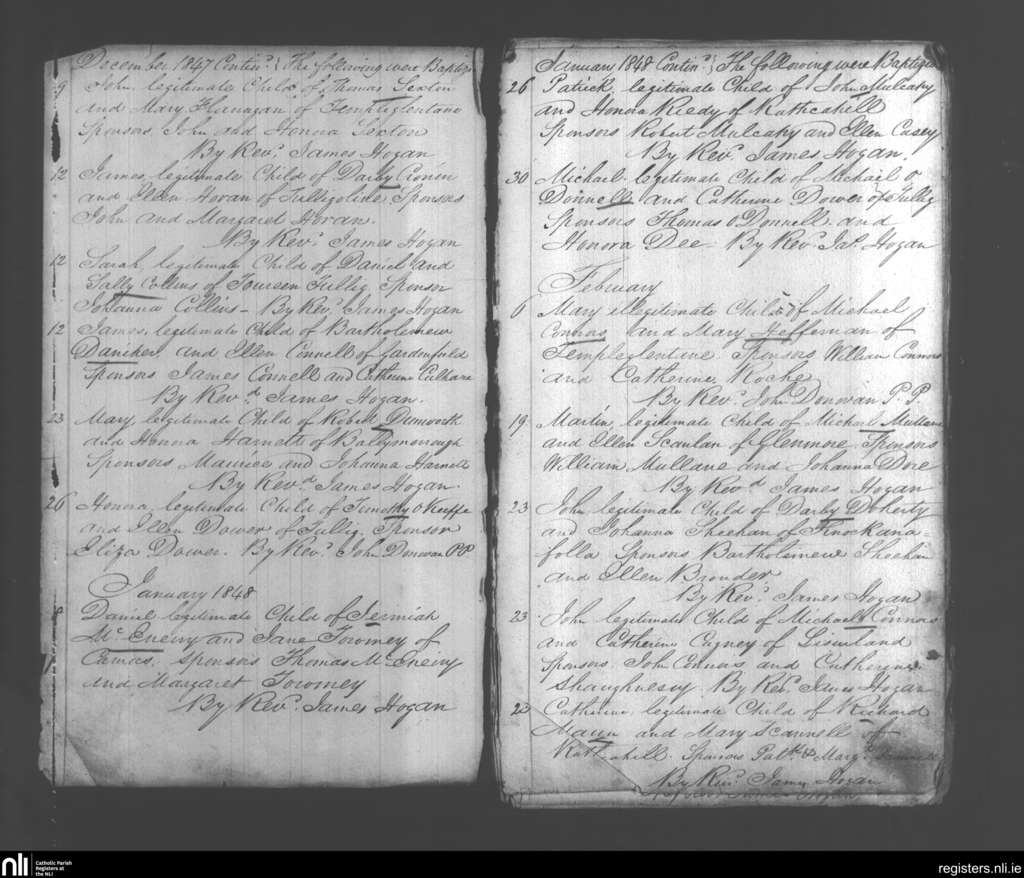 December 1847 Contin.d The following were Baptize
9 John, legitimate Child of Thomas Sexton
and Mary Flanagan of Templeglentane
Sponsors John and Honora Sexton
By Rev.d James Hogan
12 James, legitimate Child of Darby Cronin
and Ellen Horan of Tulligoline Sponsors
John and Margaret Horan.
By Rev.d James Hogan
12 Sarah, legitimate Child of Daniel and
Sally Collins of Toureen Tullig Sponsor
Johanna Collins - By Rev.d James Hogan
12 James, legitimate Child of Bartholemew
and Ellen Connell of Gardenfield
Sponsors James Connell and Catherine Culhane
By Rev.d James Hogan.
23 Mary legitimate Child of Robert
and Honora Harnett of
Sponsors Maurice and Johanna Harnett
By Rev.d James Hogan.
26 Honora, legitimate Child of Timothy O Keeffe
and Ellen Dower of Tullig. Sponsor
Eliza Dower. By Rev.d John Donovan PP
January 1848
Daniel legitimate Child of Jermiah
Mc Eneiry and Jane Towmey of
Camas. Sponsors Thomas Mc Eneiry
and Margaret Towmey
By Rev.d James Hogan
January 1848 Contin.d The following were Baptize
26 Patrick, legitimate Child of John Mulcahy
and Honora Riedy of Rathcahill
Sponsors Robert Mulcahy and Ellen Casey
By Rev.d James Hogan.
30 Michael legitimate Child of Michael O
Donnell and Catherine Dower of Tullig
Sponsors Thomas O Donnell and
Honora Dee. By Rev.d Ja.s Hogan
February
6 Mary illegitimate Child of Michael
Connors and Mary Heffernan of
Templeglentine Sponsors William Connors
and Catherine Roche
By Rev.d John Donovan P.P
19 Martin, legitimate Child of Michael Mullane
and Ellen Scanlan of Glenmore, Sponsors
William Mullane and Johanna Dore
By Rev.d James Hogan
23 John, legitimate Child of Darby Doherty
and Johanna Sheehan of Knockana-
folla Sponsors Bartholemew Sheehan
and Ellen Brouder
By Rev.d James Hogan
23 John legitimate Child of Michael Connors
and Catherine Cagney of
Sponsors. John Connors and Catherine
Shaughnessy By Rev.d James Hogan
23 Catherine, legitimate Child of Richard
and Mary Scannell of
Rathcahill. Sponsors Pat.k & Mary Scannell
By Rev.d James Hogan
nli
Catholic Parish
Registers at
the NLI
registers.nli.ie